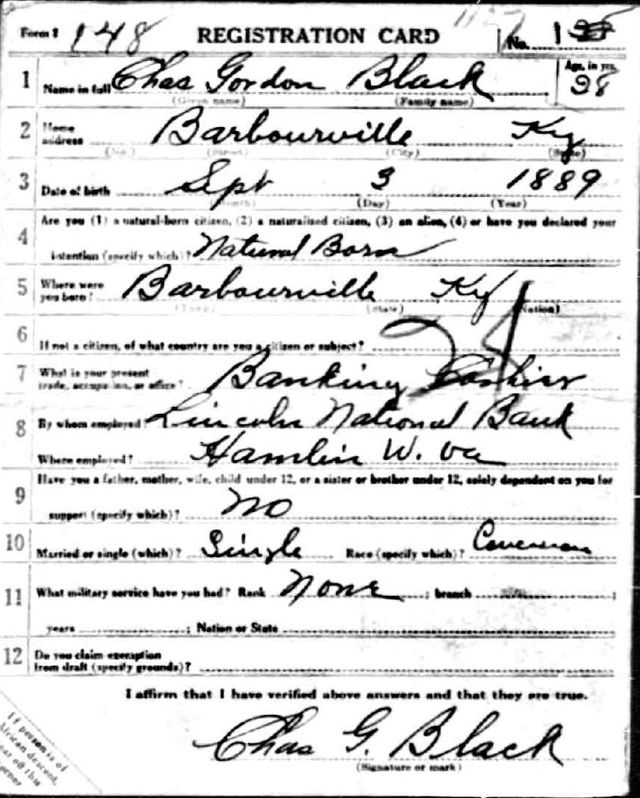 Form 1 148 REGISTRATION CARD No. 1
1 Name in full Chas Gordon Black Age, in yrs. 28
(Given name) (Family name)
2 Home address Barbourville Ky
(No.) (Street) (City) (State)
3 Date of birth Sept 3 1889
(Month) (Day) (Year)
4 Are you (1) a natural-born citizen, (2) a naturalized citizen, (3) an alien, (4) or have you declared your
intention (specify which)? Natural Born
5 Where were you born? Barbourville Ky
(Town) (State) (Nation)
6 If not a citizen, of what country are you a citizen or subject?
7 What is your present trade, occupation, or office? Banking Cashier
8 By whom employed Lincoln National Bank
Where employed? Hamlin W. va
9 Have you a father, mother, wife, child under 12, or a sister or brother under 12, solely dependent on you for
support (specify which)? No
10 Married or single (which)? Single Race (specify which)?
11 What military service have you had? Rank None ; branch ;
years ; Nation or State
12 Do you claim exemption from draft (specify grounds)?
I affirm that I have verified above answers and that they are true.
Chas G. Black
(Signature or mark)
If person is of
African descent,